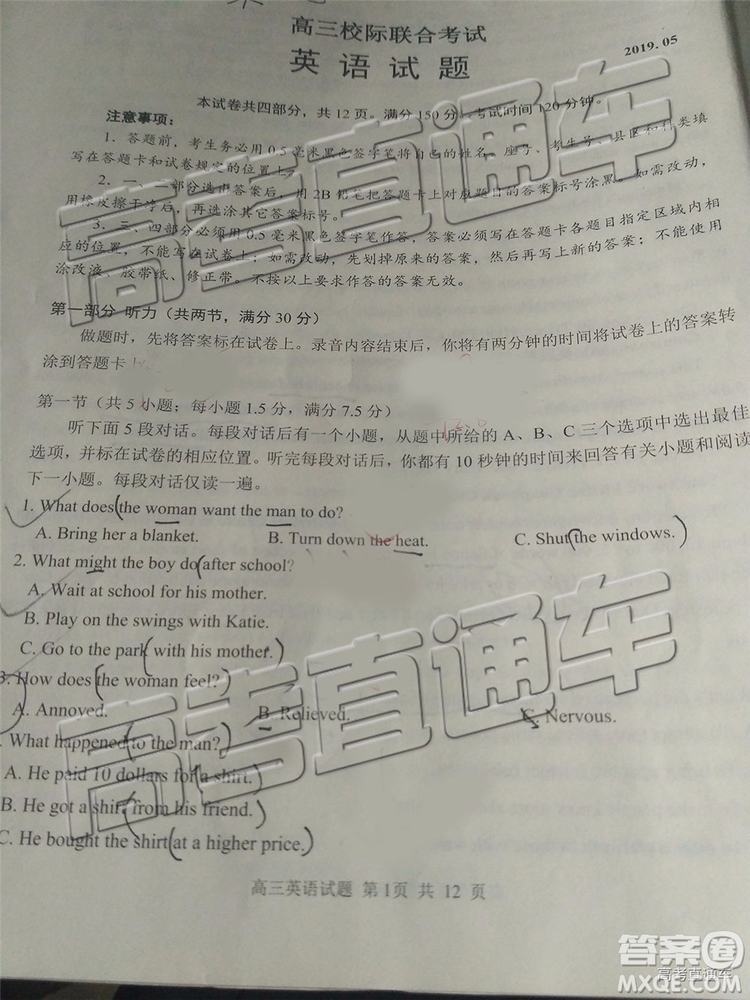 高三校际联合考试
2019.05
英语试题
本试卷共四部分，共12页。满分150分。考试时间120分钟。
注意事项：
1．答题前，考生务必用0.5毫米黑色签字笔将自己的姓名、座号、考生号、县区和科类填
写在答题卡和试卷规定的位置上。
2．一、二部分选出答案后，用2B铅笔把答题卡上对应题目的答案标号涂黑。如需改动，
用橡皮擦干净后，再选涂其它答案标号。
3．三、四部分必须用0.5毫米黑色签字笔作答，答案必须写在答题卡各题目指定区域内相
应的位置，不能写在试卷上；如需改动，先划掉原来的答案，然后再写上新的答案；不能使用
涂改液、胶带纸、修正带。不按以上要求作答的答案无效。
第一部分 听力（共两节，满分30分）
做题时，先将答案标在试卷上。录音内容结束后，你将有两分钟的时间将试卷上的答案转
涂到答题卡
第一节（共5小题；每小题1.5分，满分7.5分）
听下面5段对话。每段对话后有一个小题，从题中所给的A、B、C三个选项中选出最佳
选项，并标在试卷的相应位置。听完每段对话后，你都有10秒钟的时间来回答有关小题和阅读
下一小题。每段对话仅读一遍。
1. What does the woman want the man to do?
A. Bring her a blanket. B. Turn down the heat. C. Shut the windows.
2. What might the boy do after school?
A. Wait at school for his mother.
B. Play on the swings with Katie.
C. Go to the park with his mother.
3. How does the woman feel?
A. Annoyed. B. Relieved. C. Nervous.
. What happened to the man?
A. He paid 10 dollars for a shirt.
B. He got a shirt from his friend.
C. He bought the shirt at a higher price.
高三英语试题 第1页 共 12 页
高考直通车
高考直通车
答案圈
高考直通车
MXQE.COM